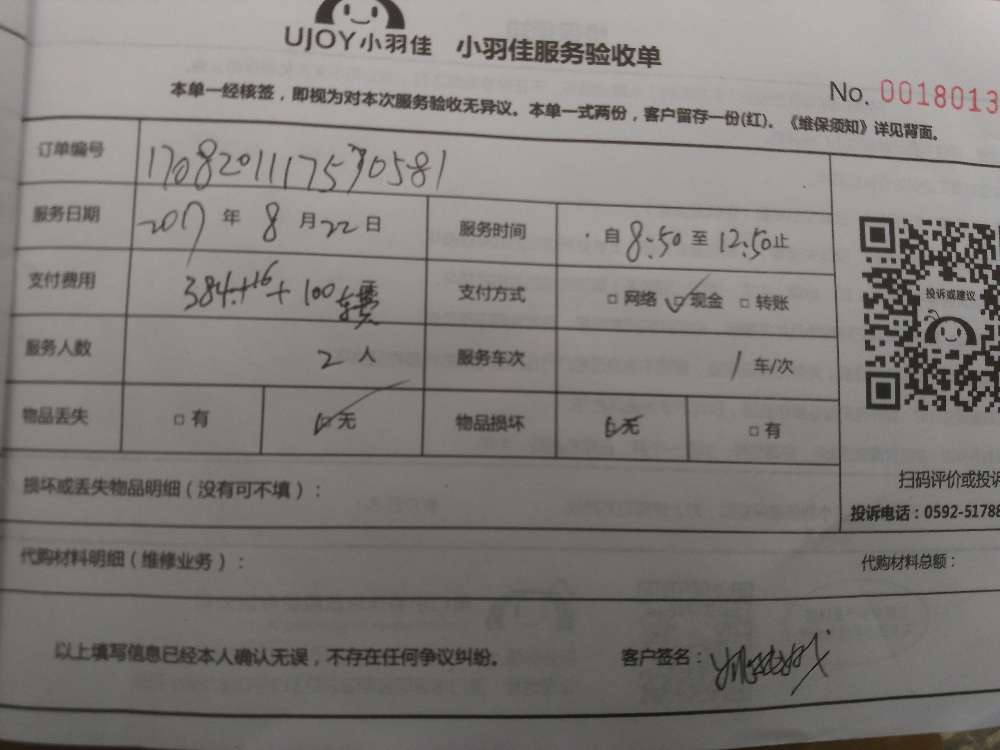 UJOY小羽佳 小羽佳服务验收单
No. 0018013
本单一经核签，即视为对本次服务验收无异议。本单一式两份，客户留存一份(红)。《维保须知》详见背面。
订单编号 1708201117570581
服务日期 2017 年 8 月 22 日 服务时间 自 8:50 至 12:50 止
支付费用 384+16+100 支付方式 □ 网络 ☑ 现金 □ 转账
服务人数 2 人 服务车次 1 车/次
物品丢失 □ 有 ☑ 无 物品损坏 ☑ 无 □ 有
投诉或建议
损坏或丢失物品明细（没有可不填）：
扫码评价或投诉
投诉电话：0592-51788
代购材料明细（维修业务）： 代购材料总额：
以上填写信息已经本人确认无误，不存在任何争议纠纷。 客户签名：